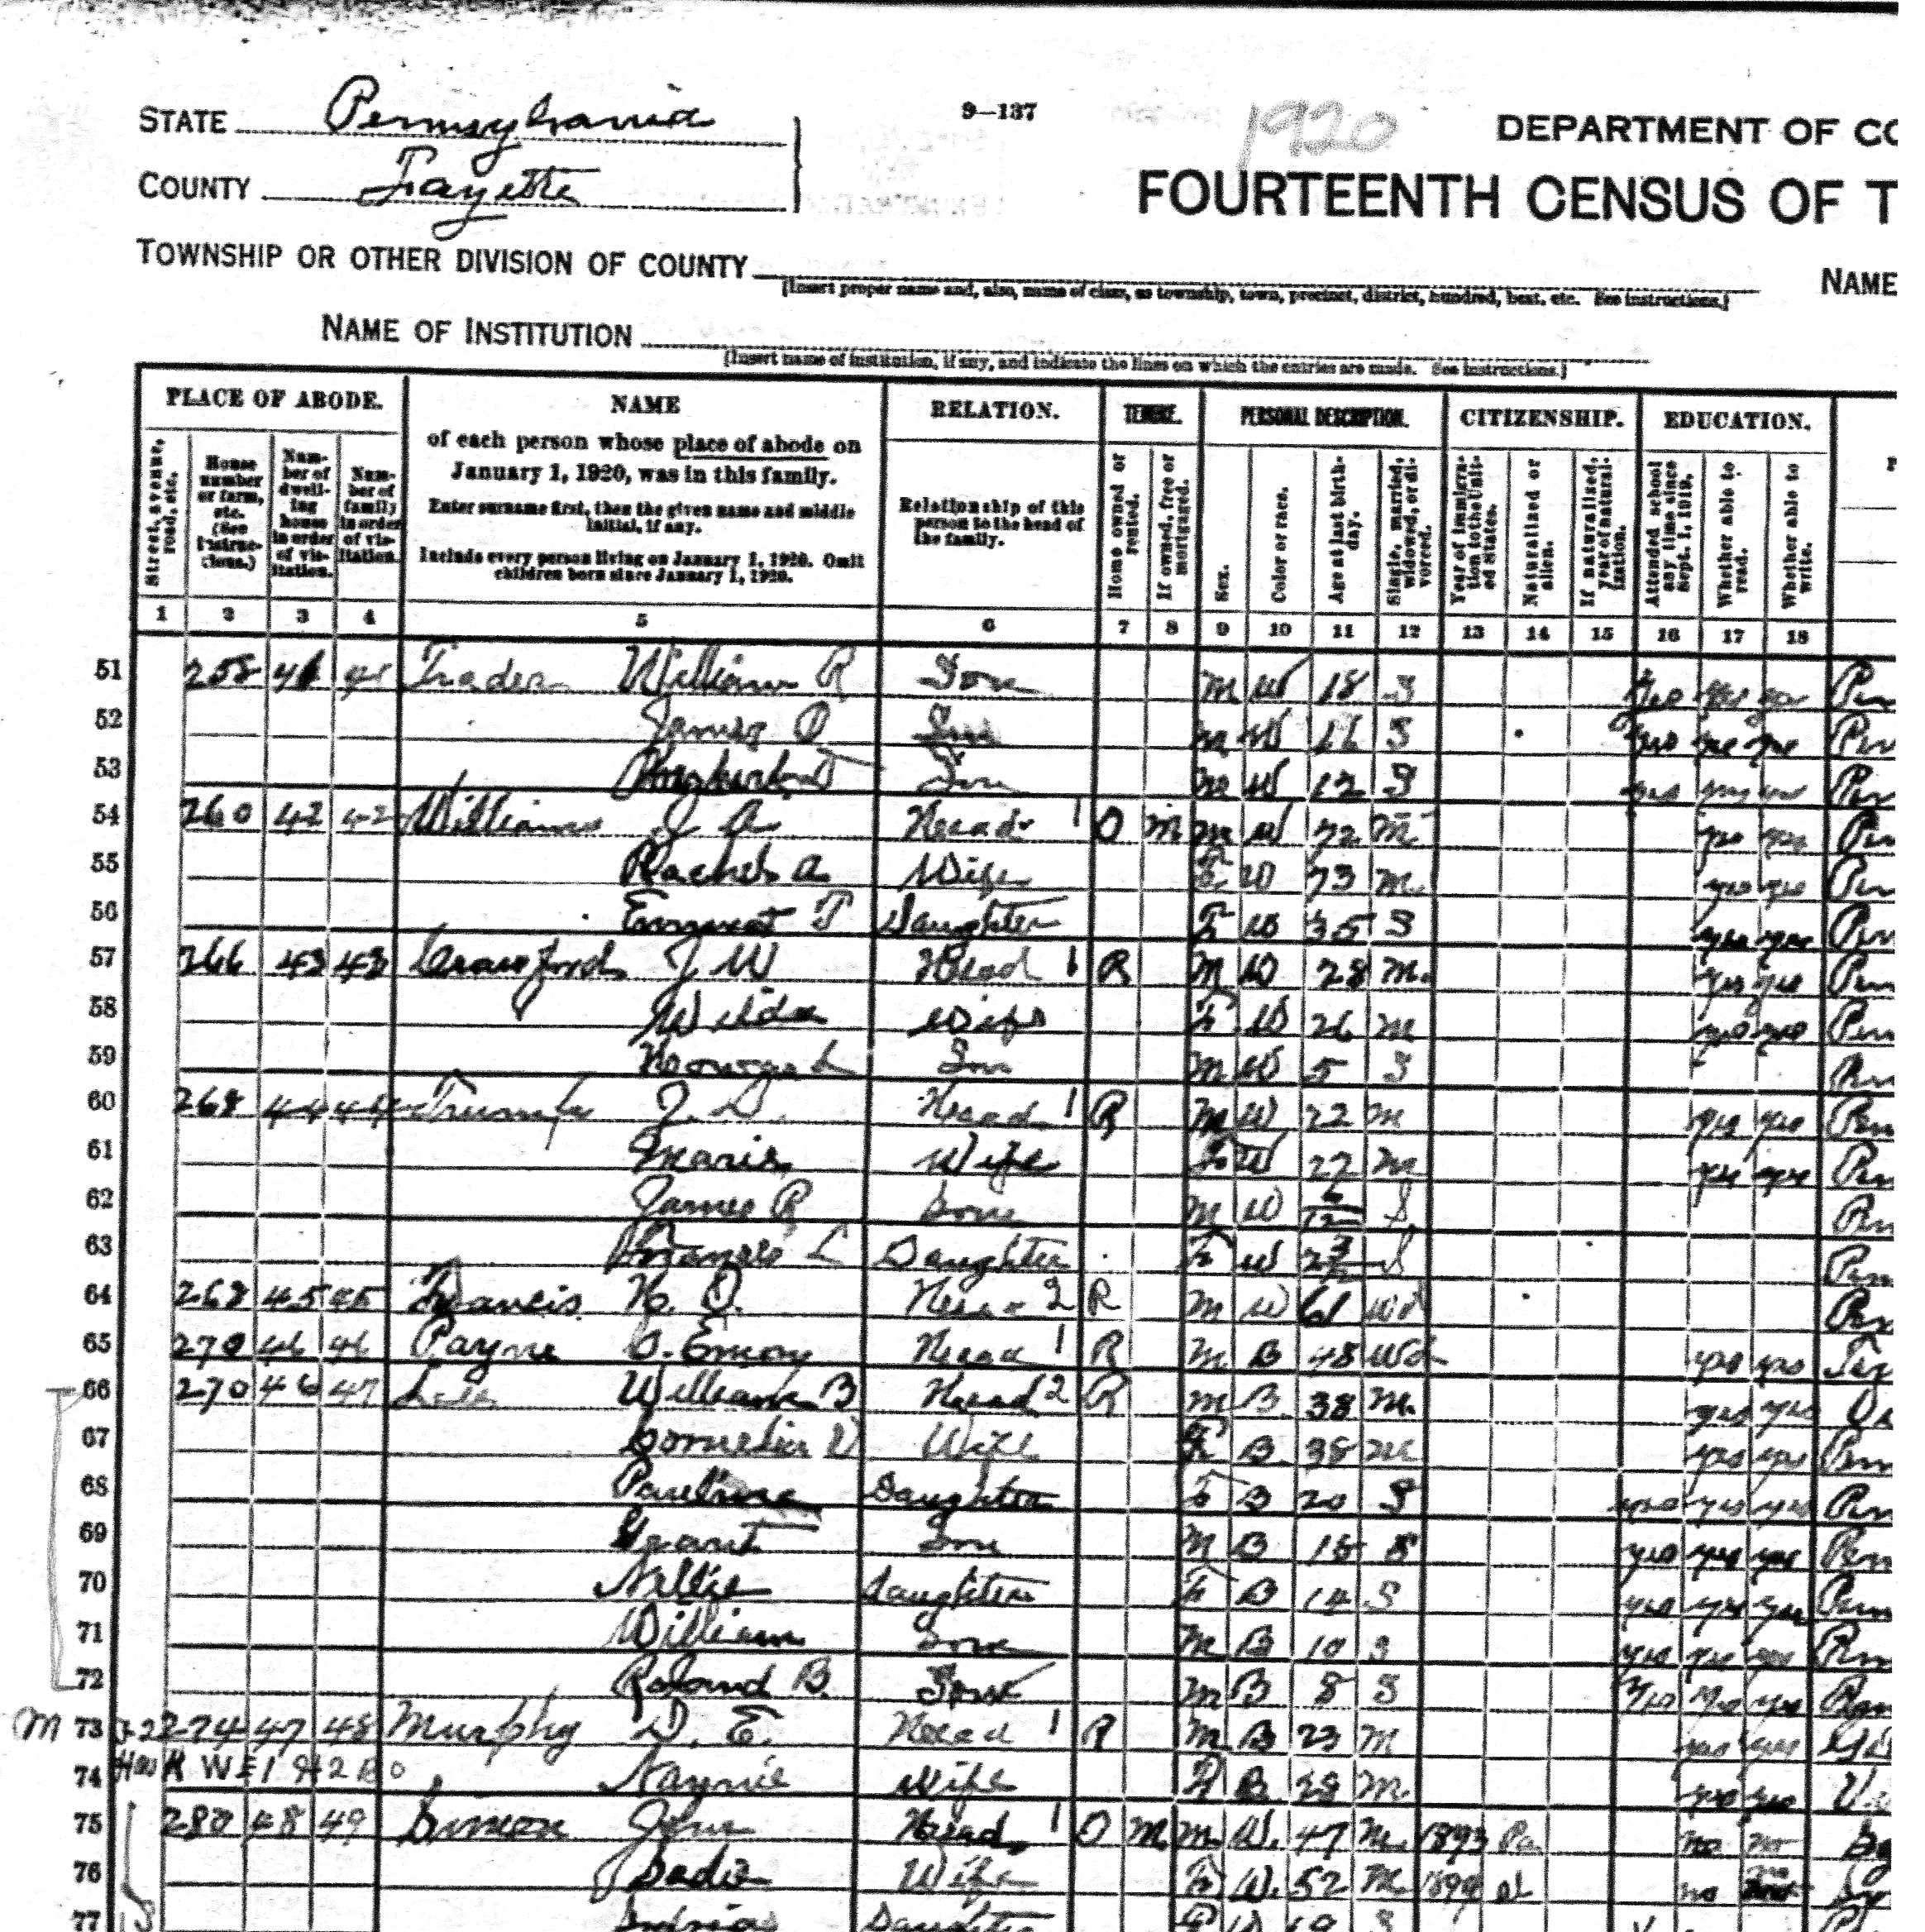 STATE Pennsylvania
9—137
1920
DEPARTMENT OF CO
COUNTY Fayette
FOURTEENTH CENSUS OF T
TOWNSHIP OR OTHER DIVISION OF COUNTY
[Insert proper name and, also, name of class, as township, town, precinct, district, hundred, beat, etc. See instructions.]
NAME
NAME OF INSTITUTION
[Insert name of institution, if any, and indicate the lines on which the entries are made. See instructions.]
PLACE OF ABODE.
Street, avenue, road, etc.
House number or farm, etc. (See instructions.)
Number of dwelling house in order of visitation.
Number of family in order of visitation.
NAME
of each person whose place of abode on
January 1, 1920, was in this family.
Enter surname first, then the given name and middle
initial, if any.
Include every person living on January 1, 1920. Omit
children born since January 1, 1920.
RELATION.
Relationship of this
person to the head of
the family.
TENURE.
Home owned or rented.
If owned, free or mortgaged.
PERSONAL DESCRIPTION.
Sex.
Color or race.
Age at last birthday.
Single, married, widowed, or divorced.
CITIZENSHIP.
Year of immigration to the United States.
Naturalized or alien.
If naturalized, year of naturalization.
EDUCATION.
Attended school any time since Sept. 1, 1919.
Whether able to read.
Whether able to write.
1 2 3 4 5 6 7 8 9 10 11 12 13 14 15 16 17 18
51 258 41 41 Trader William R Son M W 18 S yes yes yes Pen
52 James O Son M W 16 S yes yes yes Pen
53 Son M W 12 S yes yes yes Pen
54 260 42 42 Williams J A Head 1 O M M W 72 M yes yes Pen
55 Rachel A Wife F W 73 M yes yes Pen
56 T Daughter F W 35 S yes yes Pen
57 266 43 43 Crawford J W Head 1 R M W 28 M yes yes Pen
58 Wilda Wife F W 26 M yes yes Pen
59 Howard L Son M W 5 S Pen
60 268 44 44 Trump J. D. Head 1 R M W 22 M yes yes Pen
61 Marie Wife F W 22 M yes yes Pen
62 James R Son M W 6/12 S Pen
63 Francis L Daughter F W 2 3/12 S Pen
64 268 45 45 Francis H. O. Head 2 R M W 61 Wd Pen
65 270 46 46 Payne O. Emory Head 1 R M B 48 Wd yes yes
66 270 46 47 Lee William B Head 2 R M B 38 M yes yes
67 Cornelia V Wife F B 38 M yes yes Pen
68 Pauline Daughter F B 20 S yes yes yes Pen
69 Grant Son M B 16 S yes yes yes Pen
70 Nellie Daughter F B 14 S yes yes yes Pen
71 William Son M B 10 S yes yes yes Pen
72 Roland B. Son M B 8 S yes yes yes Pen
M 73 274 47 48 Murphy D. E. Head 1 R M B 23 M yes yes
74 Nannie Wife F B 28 M yes yes
75 280 48 49 Simon John Head 1 O M M W. 47 M 1893 Pa no no
76 Sadie Wife F W. 52 M 1899 no
77 Daughter F W 19 S